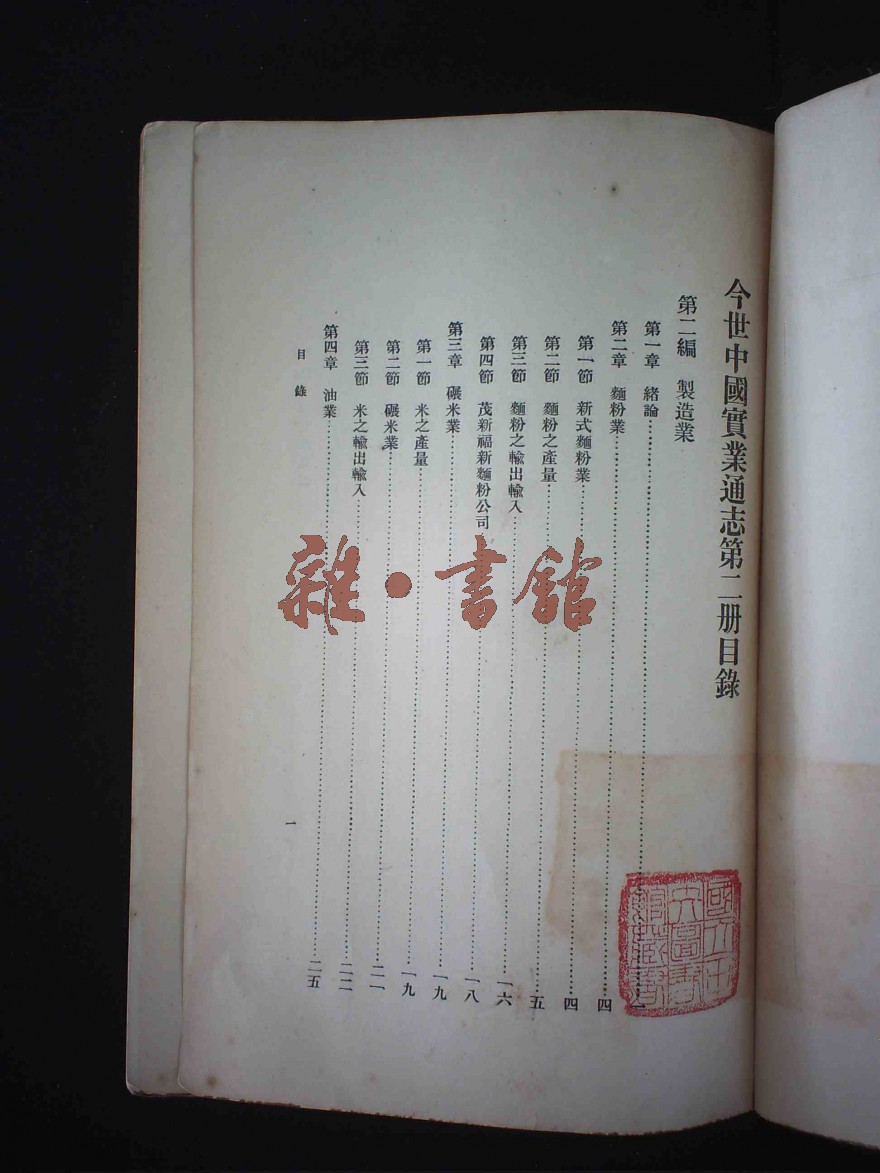 今世中國實業通志第二册目錄
第二編　製造業
第一章　緒論……一
第二章　麵粉業……四
第一節　新式麵粉業……四
第二節　麵粉之產量……五
第三節　麵粉之輸出輸入……一六
第四節　茂新福新麵粉公司……一八
第三章　碾米業……一九
第一節　米之產量……一九
第二節　碾米業……二一
第三節　米之輸出輸入……二二
第四章　油業……二五
目錄
一
雜·書館